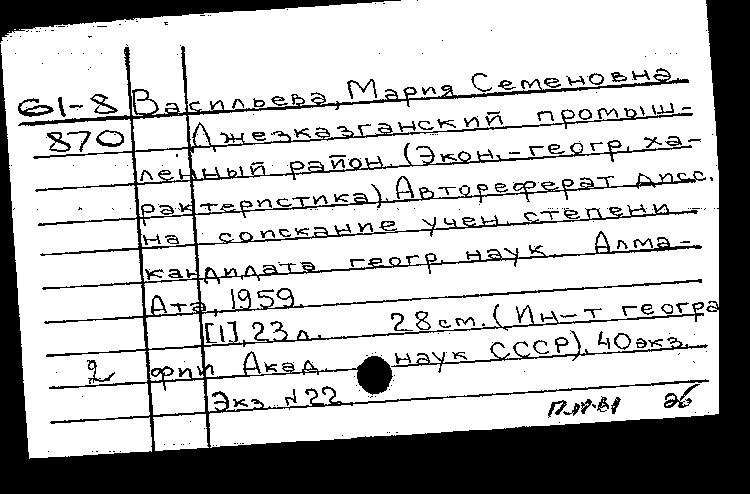 61-8 Васильева, Мария Семеновна.
870 Джезказганский промыш-
ленный район. (Экон.-геогр. ха-
рактеристика). Автореферат дисс.
на соискание учен. степени
кандидата геогр. наук. Алма-
Ата, 1959.
[1], 23 л. 28 см. (Ин-т геогра
фии Акад. наук СССР). 40 экз.
Экз. №22